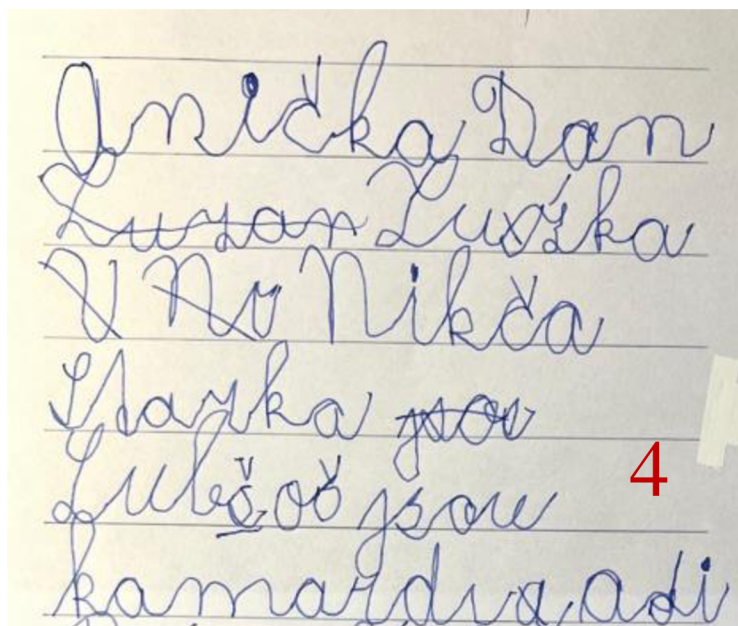 Anička Dan
Zuzan Zuzka
V Nv Nikča
Starka jsou
Lubčoš jsou
4
kamardi a